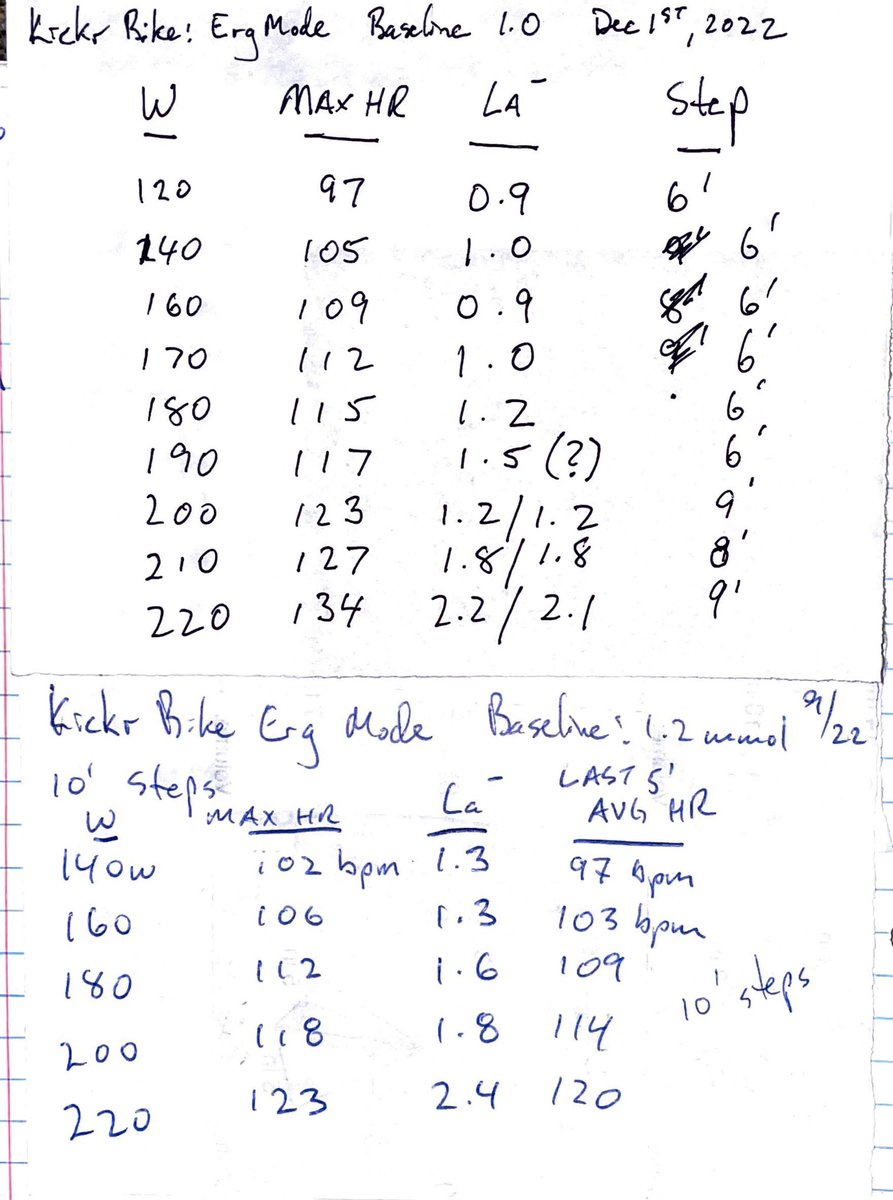 Kickr Bike: Erg Mode Baseline 1.0 Dec 1ST, 2022
W MAX HR LA⁻ Step
120 97 0.9 6'
140 105 1.0 6'
160 109 0.9 6'
170 112 1.0 6'
180 115 1.2 6'
190 117 1.5 (?) 6'
200 123 1.2/1.2 9'
210 127 1.8/1.8 8'
220 134 2.2/2.1 9'
Kickr Bike Erg Mode Baseline: 1.2 mmol 9/22
10' steps
W MAX HR La⁻ LAST 5' AVG HR
140w 102 bpm 1.3 97 bpm
160 106 1.3 103 bpm
180 112 1.6 109
10' steps
200 118 1.8 114
220 123 2.4 120